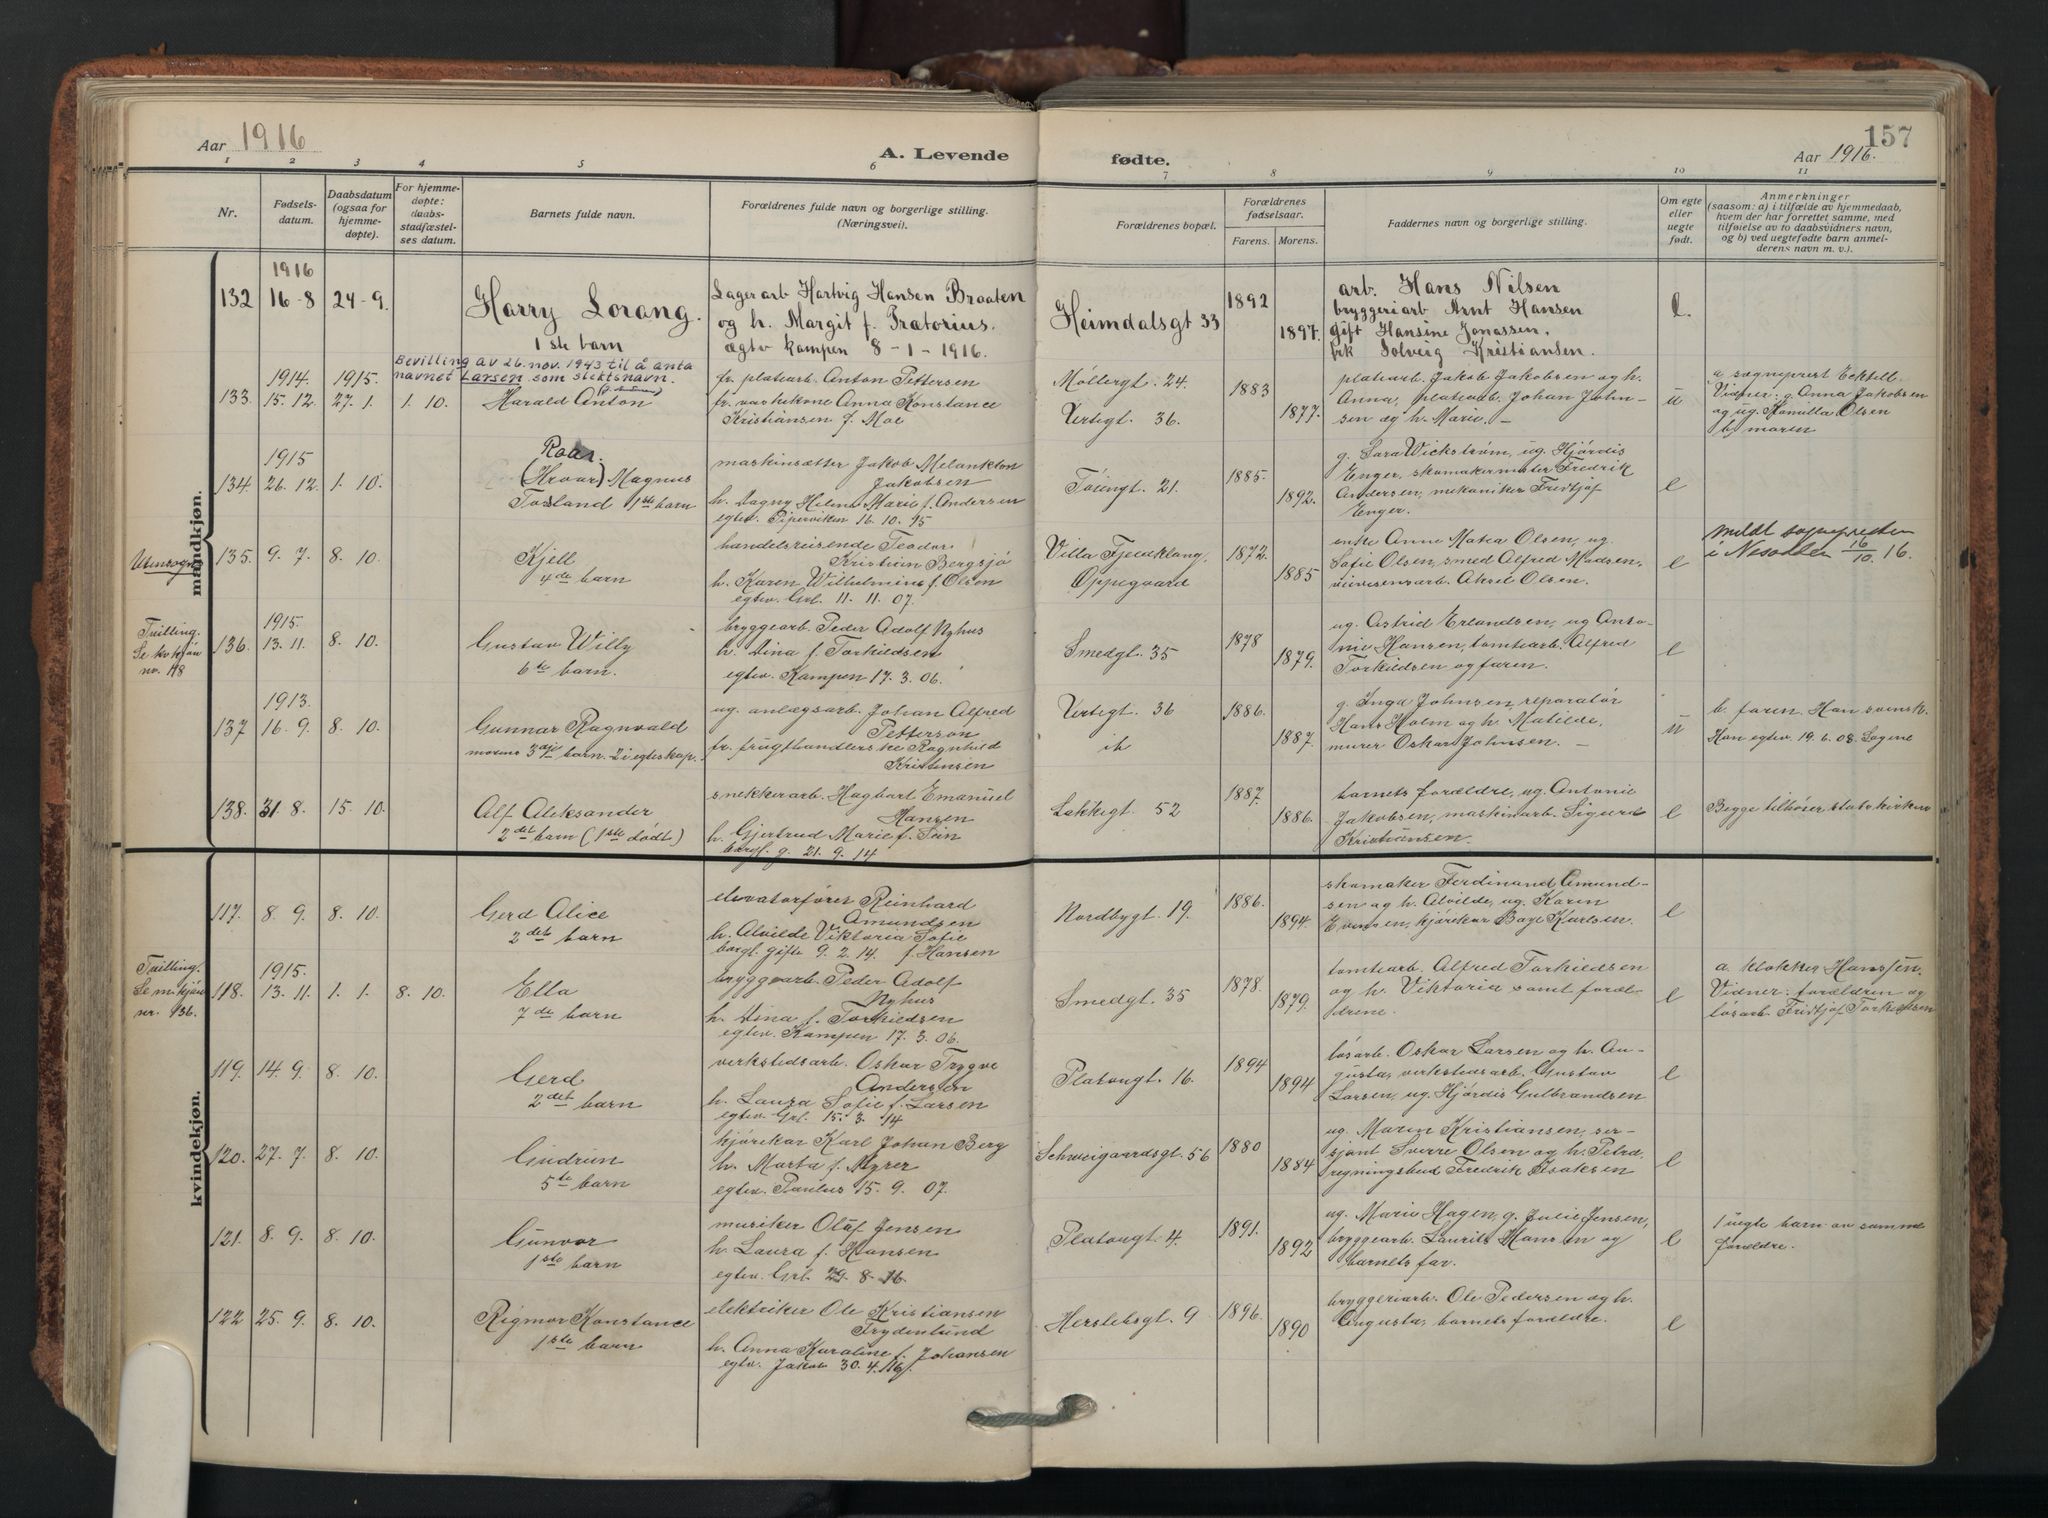 Aar 1916
A. Levende fødte.
157
Aar 1916.
1 2 3 4 5 6 7 8 9 10 11
Nr.
Fødsels-
datum.
Daabsdatum
(ogsaa for
hjemme-
døpte).
For hjemme-
døpte:
daabs-
stadfæstel-
ses datum.
Barnets fulde navn.
Forældrenes fulde navn og borgerlige stilling.
(Næringsvei).
Forældrenes bopæl.
Forældrenes
fødselsaar.
Farens. Morens.
Faddernes navn og borgerlige stilling.
Om egte
eller
uegte
født.
Anmerkninger
(saasom: a) i tilfælde av hjemmedaab,
hvem der har forrettet samme, med
tilføielse av to daabsvidners navn,
og b) ved uegtefødte barn anmel-
derens navn m. v.).
mandkjøn.
1916
132 16-8 24-9.
Harry Lorang.
1ste barn
Lagerarb Hartvig Hansen Braaten
og h. Margit f. Prætorius.
ægtev Kampen 8-1-1916.
Heimdalsgt 33
1892
1897.
arb. Hans Nilsen
bryggeriarb Arnt Hansen
gift Hansine Jonassen.
frk Solveig Kristiansen.
e.
Bevilling av 26. nov. 1943 til å anta
navnet Larsen som slektsnavn.
1914. 1915.
133. 15. 12. 27. 1. 1. 10.
Harald Anton
fr. platearb. Anton Pettersen
fr. vaskekone Anna Konstance
Kristiansen f. Moe
Møllergt. 24.
Vertigt. 36.
1883
1877.
platearb. Jakob Jakobsen og h.
Anna, platearb. Johan John-
sen og h. Marie. —
u
a sogneprest
Vidner: g. Anna Jakobsen
og ug. Kamilla Olsen
b) moren
1915
134. 26. 12. 1. 10.
Roar
(Hroar) Magnus
Torsland 1ste barn
maskinsætter Jakob Melankton
Jakobsen
h. Dagny Helene Marie f. Andersen
egtev. Pipervikens 16. 10. 15
Tøiengt. 21.
1885.
1892.
g. Sara Wickstrøm, ug. Hjørdis
Enger, skomakermester Fredrik
Andersen, mekaniker Fridtjof
Enger.
e
Utensogns
135. 9. 7. 8. 10.
Kjell
4de barn
handelsreisende Teodor
Kristian Bergsjø
h. Karen Wilhelmine f. Olsen
egtev. Grl. 11. 11. 07.
Villa Fjeldklang,
Oppegaard
1872.
1885
enke Anne Matea Olsen, ug.
Sofie Olsen, smed Alfred Madsen,
Aksel Olsen.
e
meldt sognepresten
i Nesodden 16/10 16.
Tvilling.
Se kv.kjøn
nr. 118
1915.
136. 13. 11. 8. 10.
Gustav Willy
6te barn.
bryggearb. Peder Adolf Nyhus
h. Dina f. Torkildsen
egtev. Kampen 17. 3. 06.
Smedgt. 35
1878
1879.
ug. Astrid Erlandsen, ug Anto-
nie Hansen, tomtearb. Alfred
Torkildsen og faren.
e
1913.
137 16. 9. 8. 10.
Gunnar Ragnvald
morens 3dje barn. 2 i egteskap.
ug. anlægsarb. Johan Alfred
Petterson
fr. frugthandlerske Ragnhild
Kristensen
Vertigt. 36
ib
1886.
1887.
g. Inga Johnsen, reparatør
Hans Holm og h. Matilde,
murer Oskar Johnsen. —
u
b. faren. Han svensk.
Hun egtev. 19. 6. 08. Sagene
138. 31. 8. 15. 10.
Alf Aleksander
2det barn (1ste dødt)
snekkerarb. Hagbart Emanuel
Hansen
h. Gjertrud Marie f. Sein
borgl. g. 21. 9. 14
Lakkegt. 52
1887.
1886.
barnets forældre, ug. Antonie
Jakobsen, maskinarb. Sigurd
Kristiansen.
e
Begge tilhører statskirken
kvindekjøn.
117. 8. 9. 8. 10.
Gerd Alice
2det barn
elevatorfører Reinhard
Amundsen
h. Alvilde Viktoria Sofie
borgl. gifte 9. 2. 14. f. Hansen
Nordbygt. 19.
1886.
1894.
skomaker Ferdinand Amund-
sen og h. Alvilde, ug. Karen
Evensen, kjørekar Karlsen.
e
Tvilling.
Se m.kjøn
nr. 136.
1915.
118. 13. 11. 1. 1. 8. 10.
Ella
7de barn
bryggearb. Peder Adolf
Nyhus
h. Dina f. Torkildsen
egtev. Kampen 17. 3. 06.
Smedgt. 35
1878.
1879.
tomtearb. Alfred Torkildsen
og h. Viktoria samt foræl-
drene.
e
a. klokker Hanssen.
Vidner: forældren og
løsarb Fridtjof Torkildsen
119. 14. 9. 8. 10.
Gerd
2det barn
verkstedsarb. Oskar Trygve
Andersen
h. Laura Sofie f. Larsen
egtev. Grl. 15. 3. 14
Platougt. 16.
1894
1894
løsarb. Oskar Larsen og h. Au-
gusta, verkstedsarb. Gustav
Larsen, ug. Hjørdis Gulbrandsen
e
120. 27. 7. 8. 10.
Gudrun
5te barn
kjørekar Karl Johan Berg
h. Marta f. Myrer
egtev. Paulus 15. 9. 07.
Schweigaardsgt. 56
1880
1884
ug. Maren Kristiansen, ser-
sjant Sverre Olsen og h. Petra,
regningsbud Fredrik Isaksen
e
121. 8. 9. 8. 10.
Gunvor
1ste barn
musiker Olaf Jensen
h. Laura f. Hansen
egtev. Grl. 29. 8. 16.
Platougt. 4.
1891.
1892
ug. Marie Hagen, g. Julie Jensen,
bryggearb. Laurits Hansen og
barnets far.
e
1 uegte barn av samme
forældre.
122 25. 9. 8. 10.
Rigmor Konstance
1ste barn
elektriker Ole Kristiansen
Frydenlund
h. Anna Karoline f. Johansen
egtev. Jakob 30. 4. 16.
Herslebsgt. 9
1896.
1890
bryggeriarb. Ole Pedersen og h.
Augusta, barnets forældre.
e